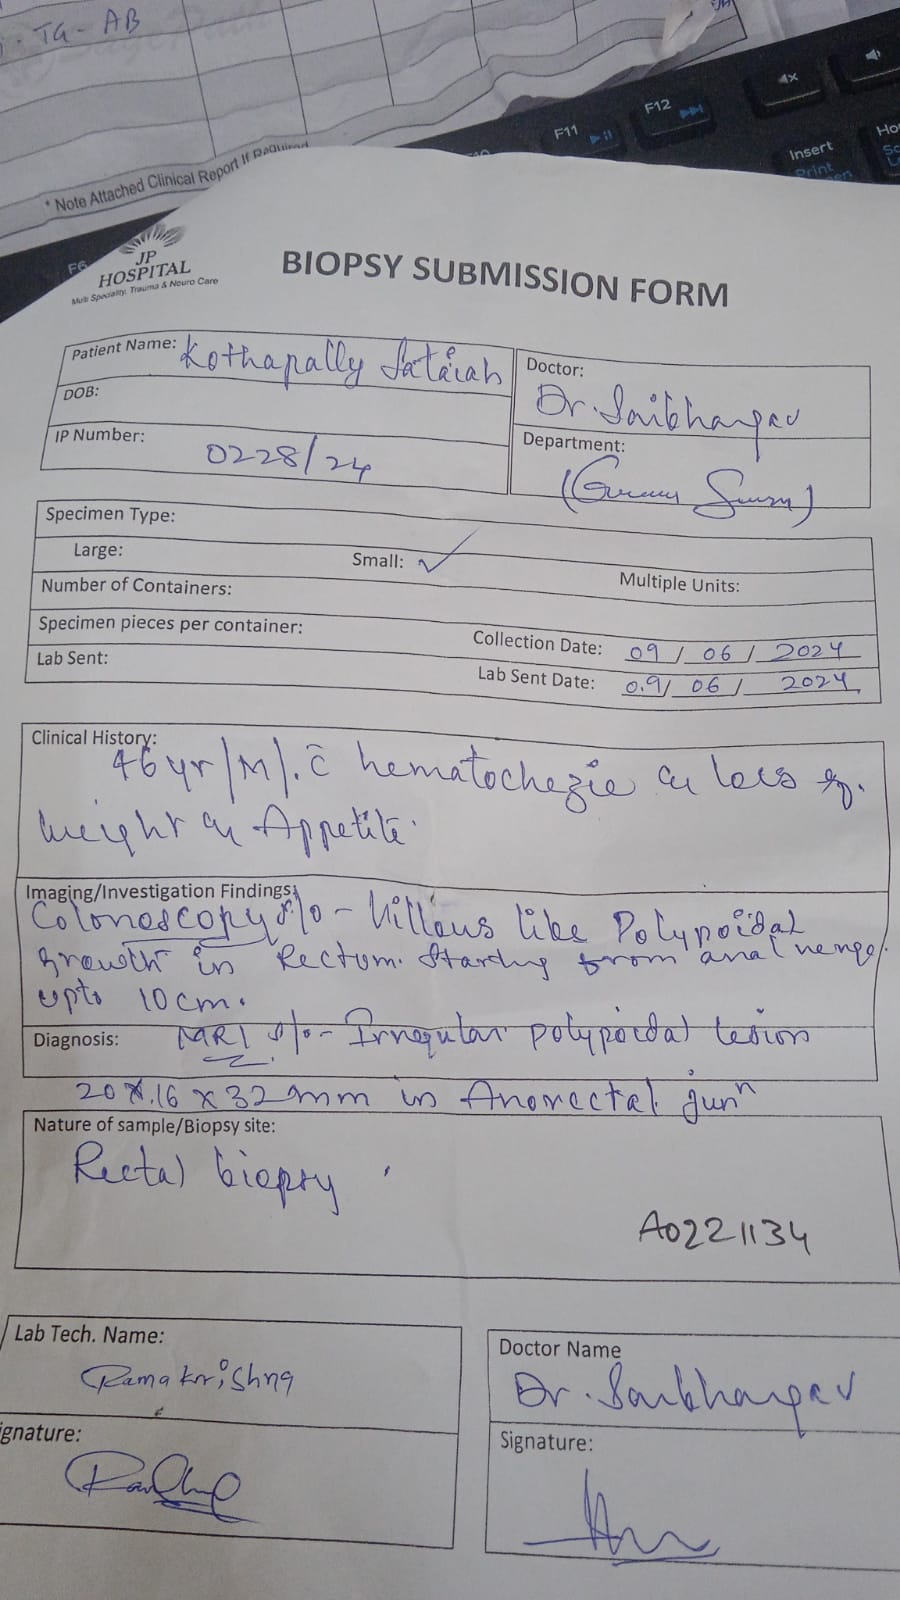 TG - AB
* Note Attached Clinical Report If Required
F11
F12
Insert
Print
F6
JP
HOSPITAL
Multi Speciality, Trauma & Neuro Care
BIOPSY SUBMISSION FORM
Patient Name: Kothapally Sataiah
Doctor:
Dr. Saibhargav
DOB:
IP Number: 0228/24
Department:
Specimen Type:
Large: Small: ✓ Multiple Units:
Number of Containers:
Specimen pieces per container:
Collection Date: 09 / 06 / 2024
Lab Sent:
Lab Sent Date: 09/ 06 / 2024
Clinical History:
46 yr/M/. c̄ hematochezia loss of
weight Appetite.
Imaging/Investigation Findings:
Colonoscopy s/o - Villous like Polypoidal
growth in Rectum. Starting from anal verge
upto 10cm.
Diagnosis: MRI s/o - Irregular polypoidal lesion
20 x 16 x 32mm in Anorectal junⁿ
Nature of sample/Biopsy site:
Rectal biopsy
A0221134
Lab Tech. Name:
Ramakrishna
Doctor Name
Dr. Saibhargav
ignature:
Signature: